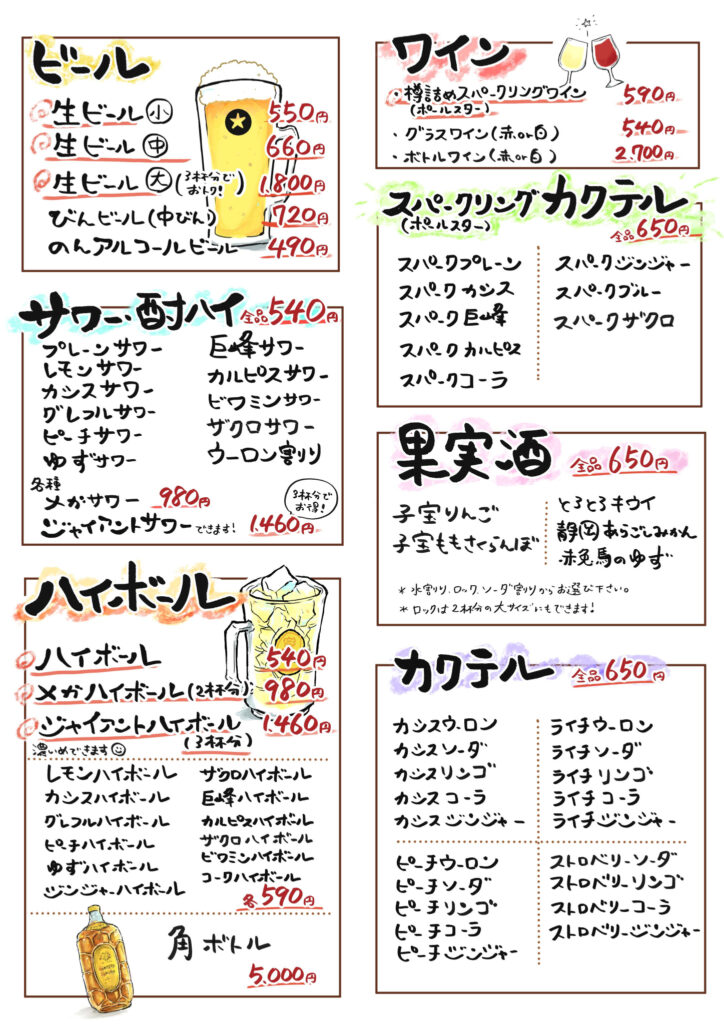 ビール
生ビール 小 550円
生ビール 中 660円
生ビール 大 (3杯分でおトク!) 1,800円
びんビール(中びん) 720円
のんアルコールビール 490円
サワー・酎ハイ 全品540円
プレーンサワー
レモンサワー
カシスサワー
グレフルサワー
ピーチサワー
ゆずサワー
巨峰サワー
カルピスサワー
ビタミンサワー
ザクロサワー
ウーロン割り
各種
メガサワー 980円
3杯分でお得!
ジャイアントサワーできます! 1,460円
ハイボール
ハイボール 540円
メガハイボール(2杯分) 980円
ジャイアントハイボール 1,460円
(3杯分)
濃いめできます
レモンハイボール
カシスハイボール
グレフルハイボール
ピーチハイボール
ゆずハイボール
ジンジャーハイボール
ザクロハイボール
巨峰ハイボール
カルピスハイボール
ザクロハイボール
ビタミンハイボール
コークハイボール
各590円
角ボトル
5,000円
ワイン
・樽詰めスパークリングワイン 590円
(ポールスター)
・グラスワイン(赤or白) 540円
・ボトルワイン(赤or白) 2,700円
スパークリングカクテル
(ポールスター) 全品650円
スパークプレーン
スパークカシス
スパーク巨峰
スパークカルピス
スパークコーラ
スパークジンジャー
スパークブルー
スパークザクロ
果実酒 全品650円
子宝りんご
子宝ももさくらんぼ
とろとろキウイ
静岡あらごしみかん
赤兎馬のゆず
*水割り、ロック、ソーダ割りからお選び下さい。
*ロックは2杯分の大サイズにもできます!
カクテル 全品650円
カシスウーロン
カシスソーダ
カシスリンゴ
カシスコーラ
カシスジンジャー
ライチウーロン
ライチソーダ
ライチリンゴ
ライチコーラ
ライチジンジャー
ピーチウーロン
ピーチソーダ
ピーチリンゴ
ピーチコーラ
ピーチジンジャー
ストロベリーソーダ
ストロベリーリンゴ
ストロベリーコーラ
ストロベリージンジャー